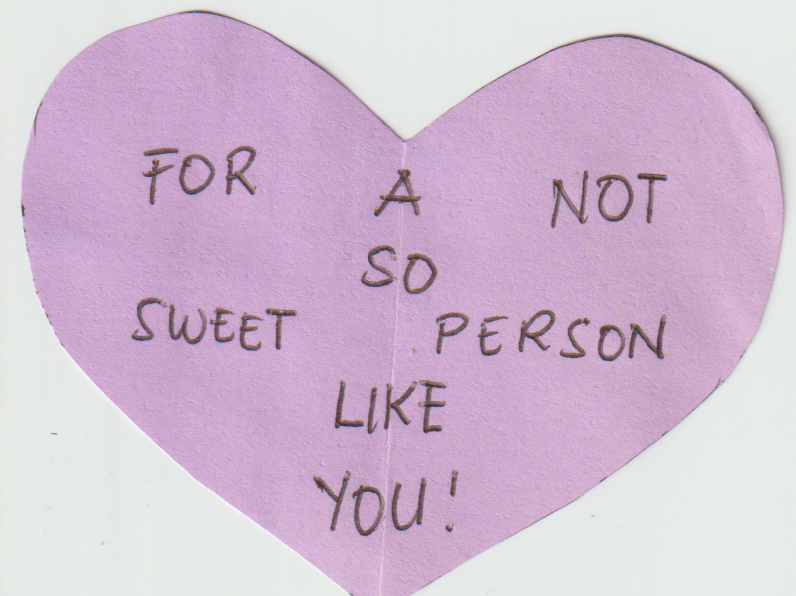 FOR A NOT
SO
SWEET PERSON
LIKE
YOU!